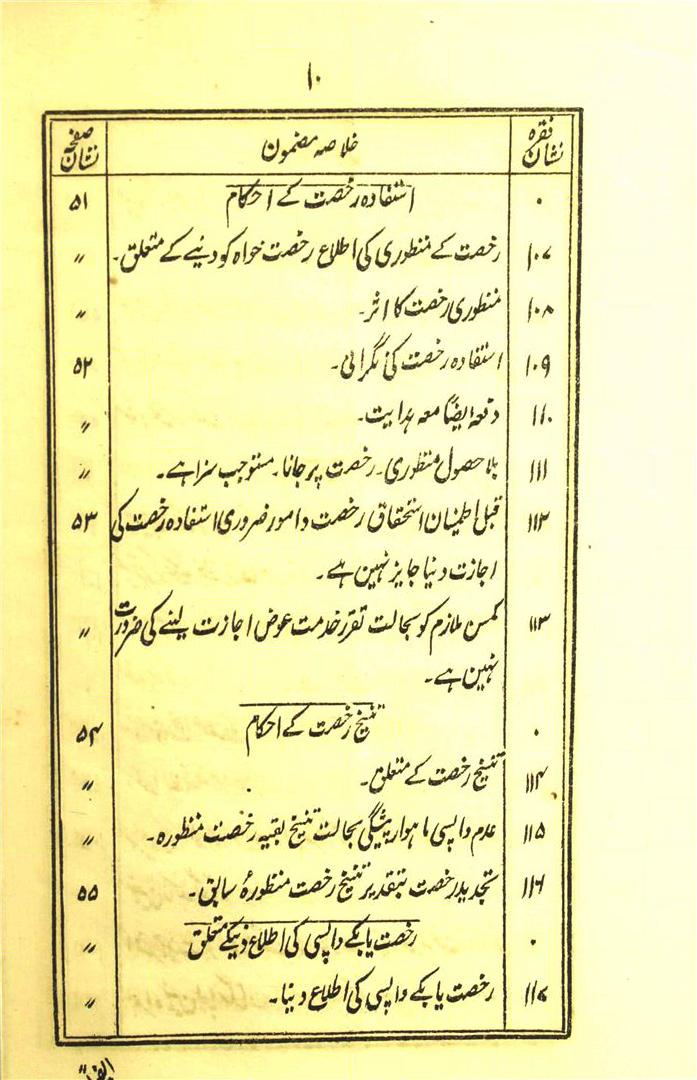 ۱۰
نشان فقرہ خلاصہ مضمون نشان صفحہ
۰ استفادہ رخصت کے احکام ۵۱
۱۰۷ رخصت کے منظوری کی اطلاع رخصت خواہ کو دینے کے متعلق۔ 〃
۱۰۸ منظوری رخصت کا اثر۔ 〃
۱۰۹ استفادہ رخصت کی نگرانی۔ ۵۲
۱۱۰ دفعہ ایضاً معہ ہدایت۔ 〃
۱۱۱ بلا حصول منظوری۔ رخصت پر جانا۔ مستوجب سزا ہے۔ 〃
۱۱۲ قبل اطمینان استحقاق رخصت و امور ضروری استفادہ رخصت کی ۵۳
اجازت دینا جایز نہین ہے۔
۱۱۳ کمسن ملازم کو بحالت تقرر خدمت عوض اجازت لینے کی ضرورت 〃
نہین ہے۔
۰ تنسیخ رخصت کے احکام ۵۴
۱۱۴ تنسیخ رخصت کے متعلق۔ 〃
۱۱۵ عدم واپسی ماہوار پیشگی بحالت تنسیخ بقیہ رخصت منظورہ۔ 〃
۱۱۶ تجدید رخصت بتقدیر تنسیخ رخصت منظورۂ سابق۔ ۵۵
۰ رخصت یابکے واپسی کی اطلاع دینیکے متعلق 〃
۱۱۷ رخصت یابکے واپسی کی اطلاع دینا۔ 〃